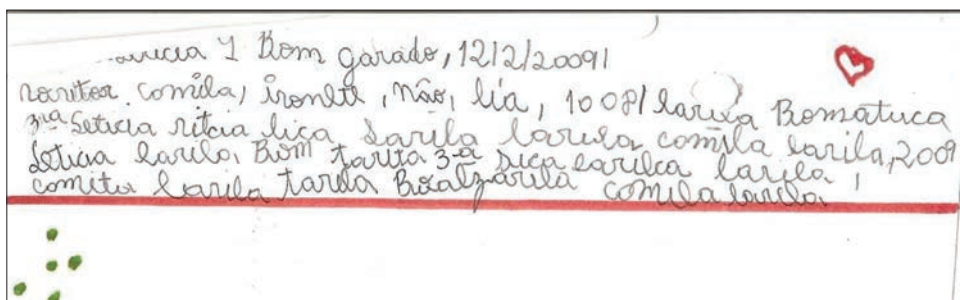 1 Bom garado, 12/2/20091
comila, ironlit, não, lia, 10081 larixa Bomatuca
3ª Leticia ritcia liça Larila larisa comila larila, 2009
Leticia larila, Bom tarita 3-ª Liça larilca larila
comita larila tarila comila larila